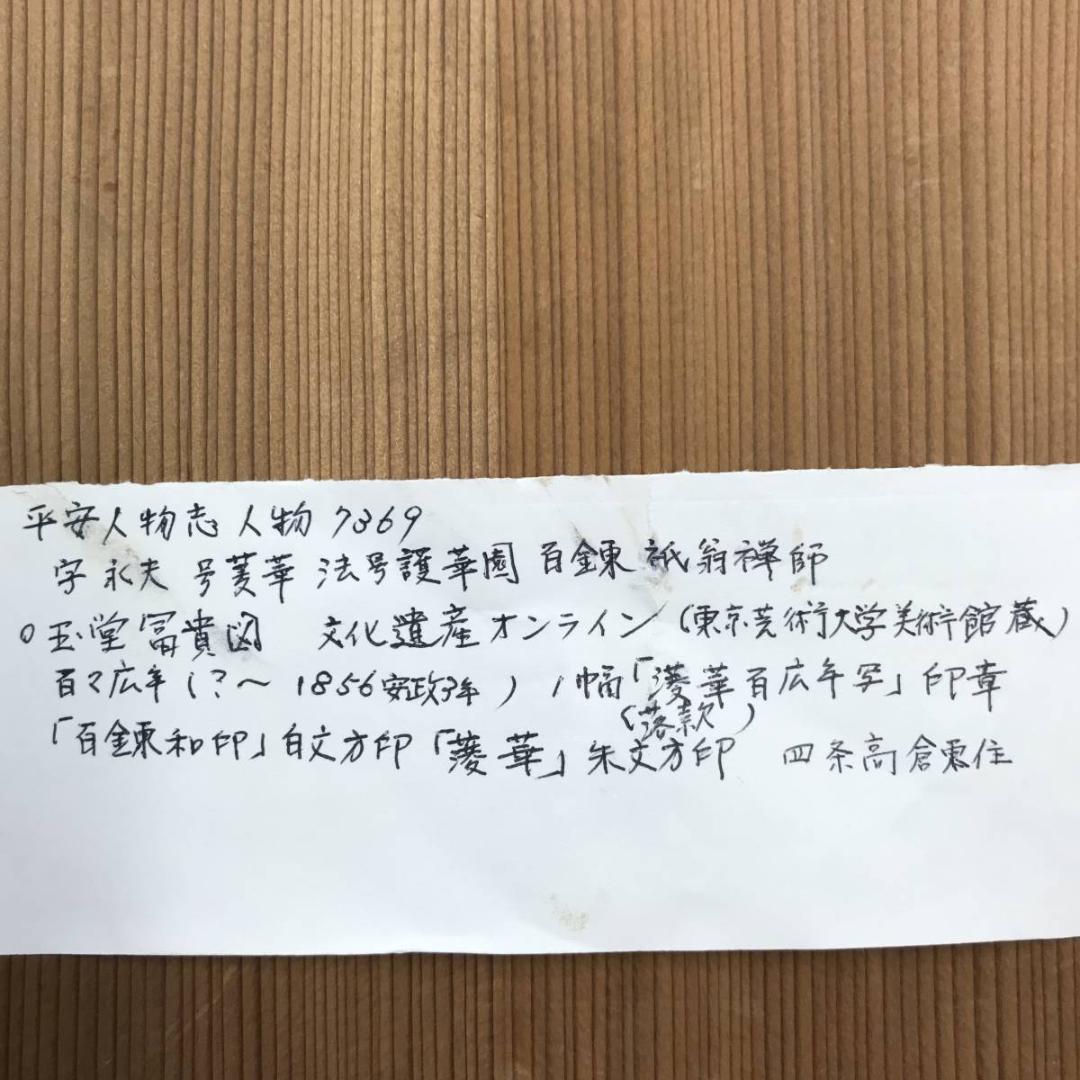 平安人物志 人物 7369
字 永夫 号菱華 法号護華園 百錬 祇翁禅師
○玉堂冨貴図 文化遺産オンライン(東京芸術大学美術館蔵)
百々広年(?～1856安政3年) 1幅「蔆華百広年写」印章
(落款)
「百錬和印」白文方印「蔆華」朱文方印 四条高倉東住